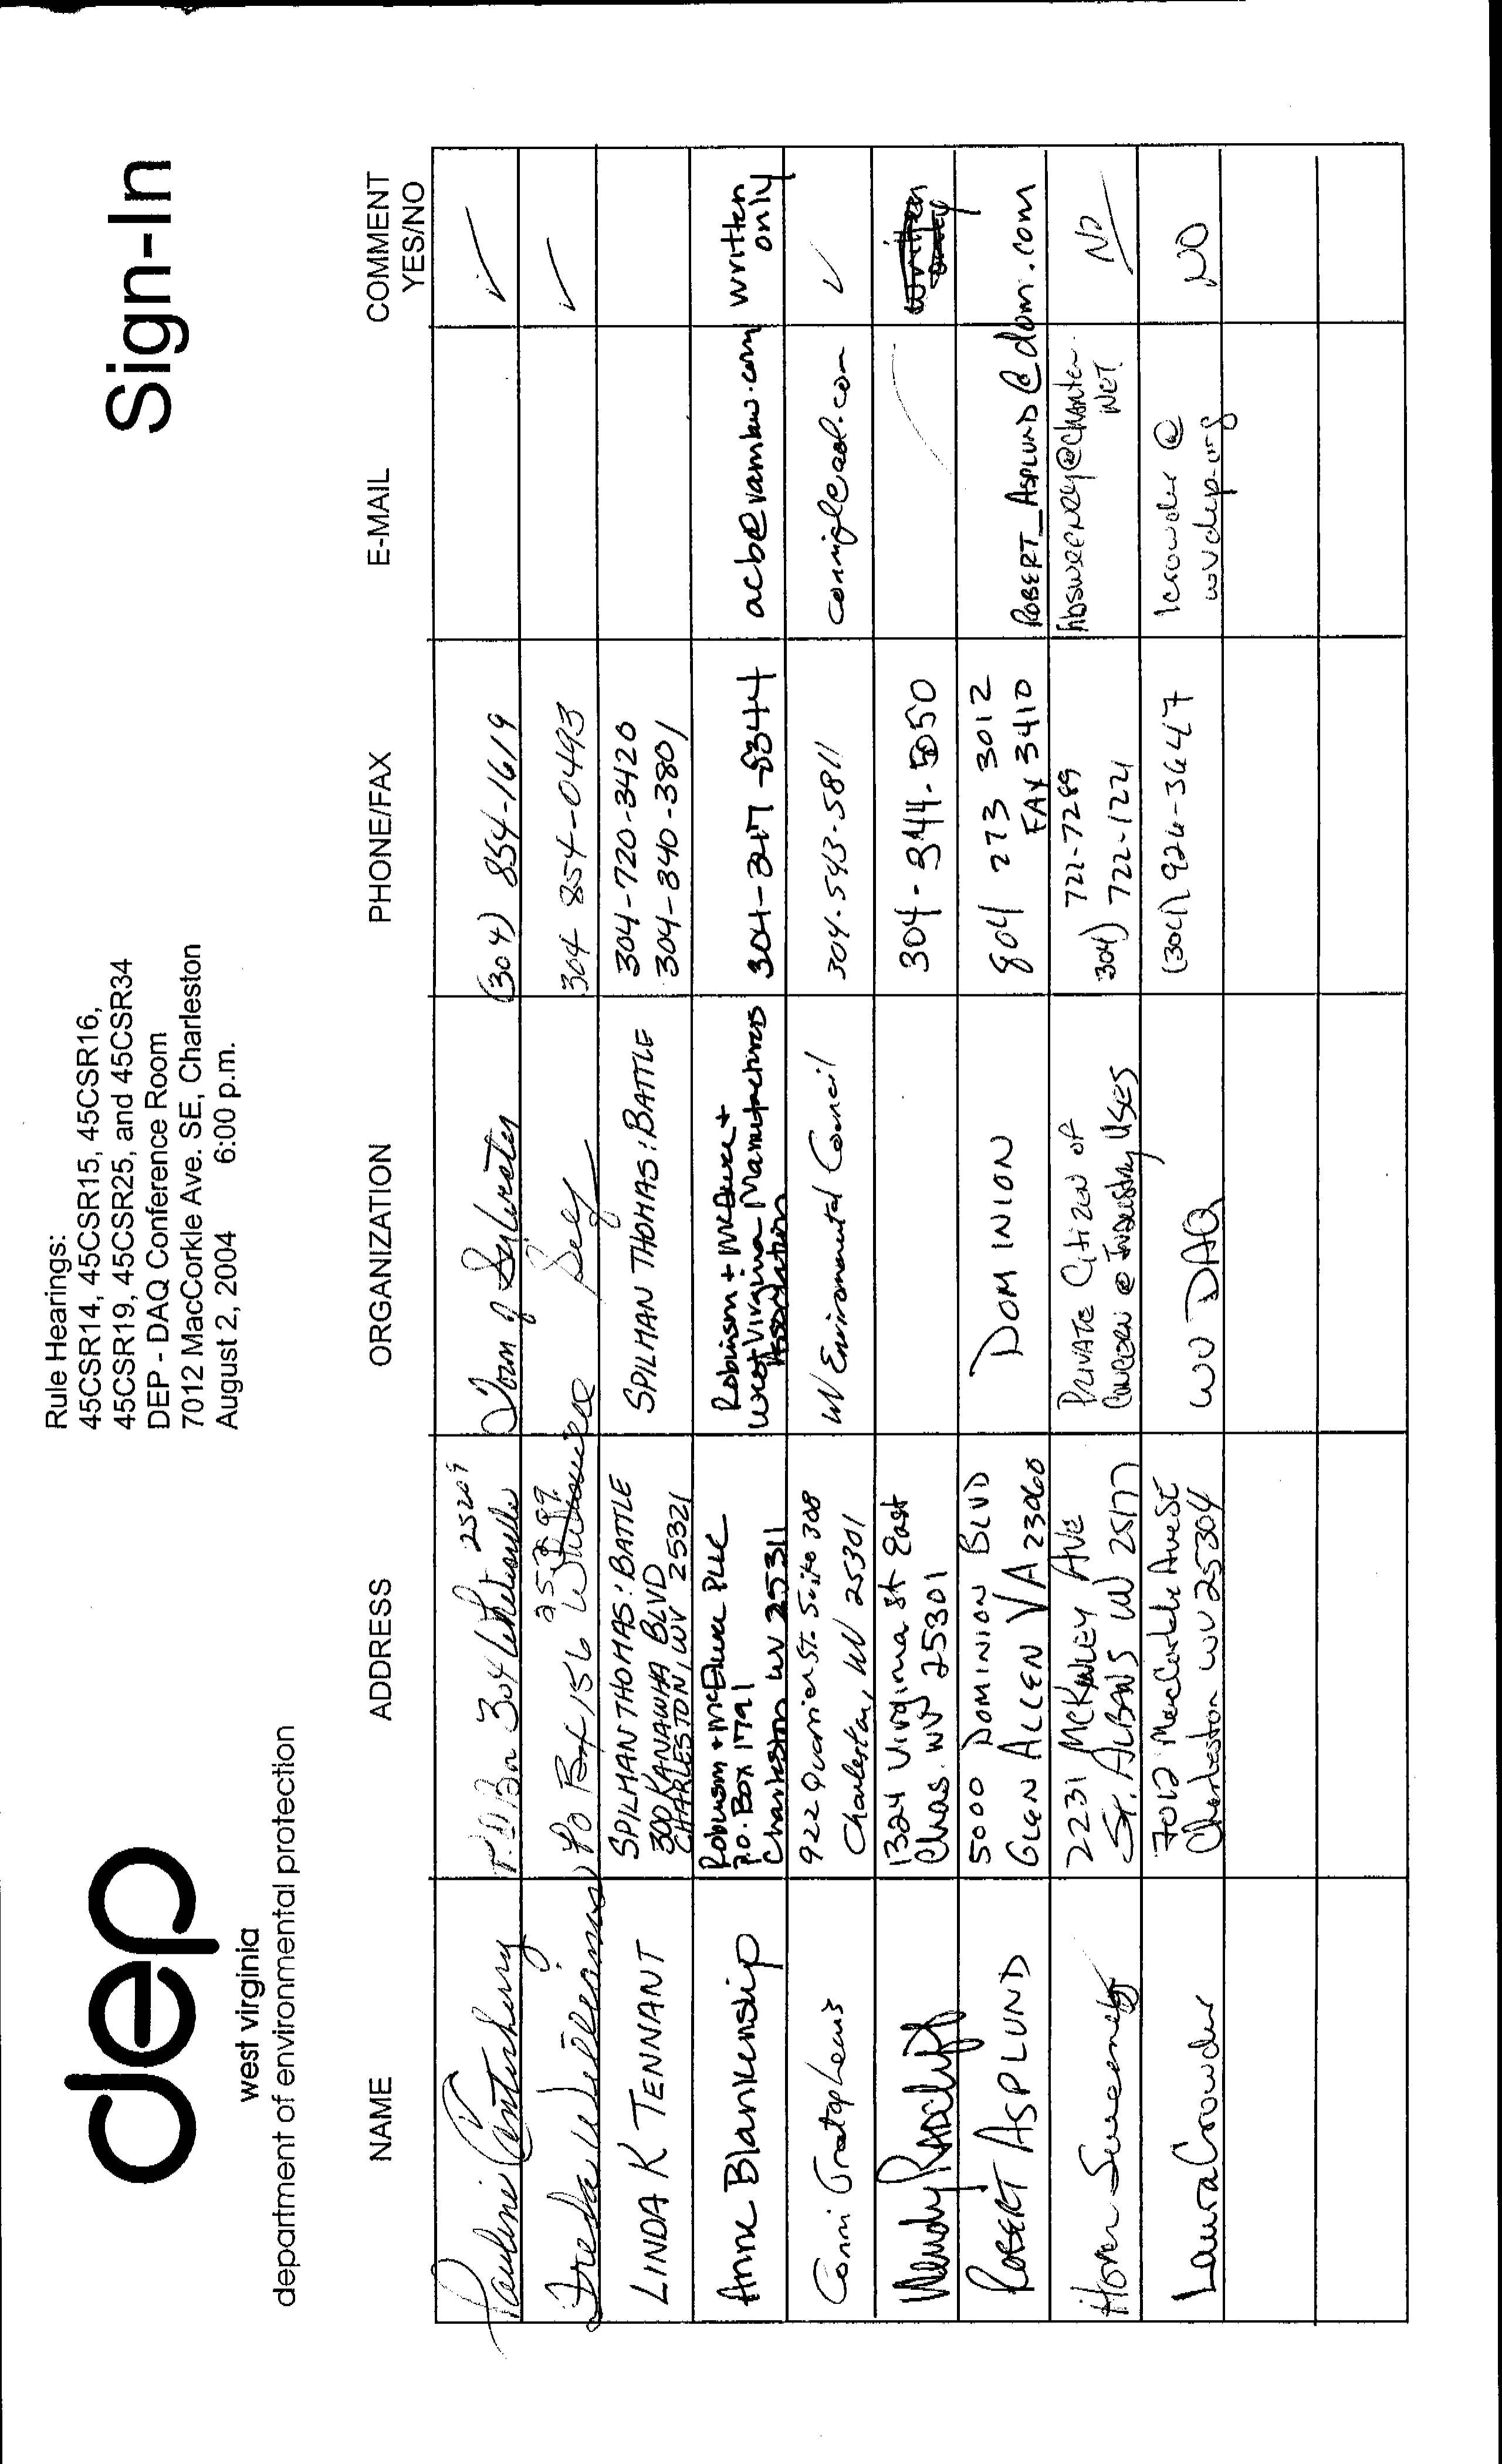 dep
west virginia
department of environmental protection
Rule Hearings:
45CSR14, 45CSR15, 45CSR16,
45CSR19, 45CSR25, and 45CSR34
DEP - DAQ Conference Room
7012 MacCorkle Ave. SE, Charleston
August 2, 2004 6:00 p.m.
Sign-In
NAME ADDRESS ORGANIZATION PHONE/FAX E-MAIL COMMENT
YES/NO
Pauline Canterberry P.O. Box 304 Whitesville 25209 Town of Sylvester (304) 854-1619 ✓
Freda Williams PO Box 156 Whitesville Self 304 854-0493 ✓
LINDA K TENNANT
SPILMAN THOMAS & BATTLE
300 KANAWHA BLVD
CHARLESTON, WV 25321
SPILMAN THOMAS & BATTLE
304-720-3420
304-340-3801
Anne Blankenship
Robinson + McElwee PLLC
P.O. Box 1791
Charleston WV 25311
Robinson + McElwee +
West Virginia Manufacturers
Association
304-347-8344
acb@ramlaw.com
written
only
Conni Gratop Lewis
922 Quarrier St. Suite 308
Charleston, WV 25301
WV Environmental Council
304-543-5811
connigl@aol.com
✓
Wendy Radcliff
1324 Virginia St East
Chas. WV 25301
304-344-5050
written
only
ROBERT ASPLUND
5000 DOMINION BLVD
GLEN ALLEN VA 23060
DOMINION
804 273 3012
FAX 3410
ROBERT_ASPLUND@dom.com
Homer Sweeney
2231 McKINLEY AVE
ST. ALBANS WV 25177
PRIVATE CITIZEN OF
CONCERN @ INDUSTRY USES
722-7289
304) 722-1221
Absweeney@charter.
NET
NO
Laura Crowder
7012 MacCorkle Ave SE
Charleston WV 25304
WV DAQ
(304) 926-3647
lcrowder @
wvdep.org
NO